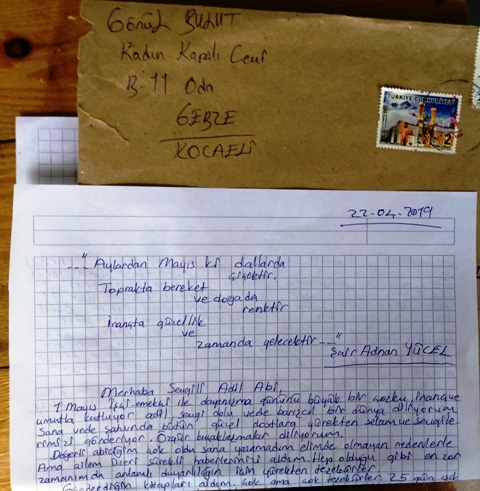 Gönül BULUT
Kadın Kapalı Cezf
B-11 Oda
GEBZE
KOCAELİ
TÜRKİYE CUMHURİYETİ
2
22-04-2019
---" Aylardan Mayıs ki dallarda
çiçektir.
Toprakta bereket
ve doğada
renktir
İnançta güzellik
ve
zamanda gelecektir ---"
Şair Adnan YÜCEL
Merhaba Sevgili Adil Abi,
1 Mayıs işçi-emekçi ile dayanışma gününü büyük bir coşku, inançve
umutla kutluyor adil, sevgi dolu vede barışcıl bir dünya diliyorum.
Sana vede şahsında bütün, güzel dostlara yürekten selam ve sevgile
rimizi gönderiyor. Özgür buluşmaları diliyorum.
Değerli abiciğim çok oldu sana yazamadım elimde olmayan nedenlerle
Ama ailem üzeri sürekli haberlerinizi aldım. Hep olduğu gibi en zor
zamanımda anlamlı duyarlılığın için yürekten teşekkürler
Gönderdiğin kitapları aldım. Çok ama çok teşekkürler 2.5 gün